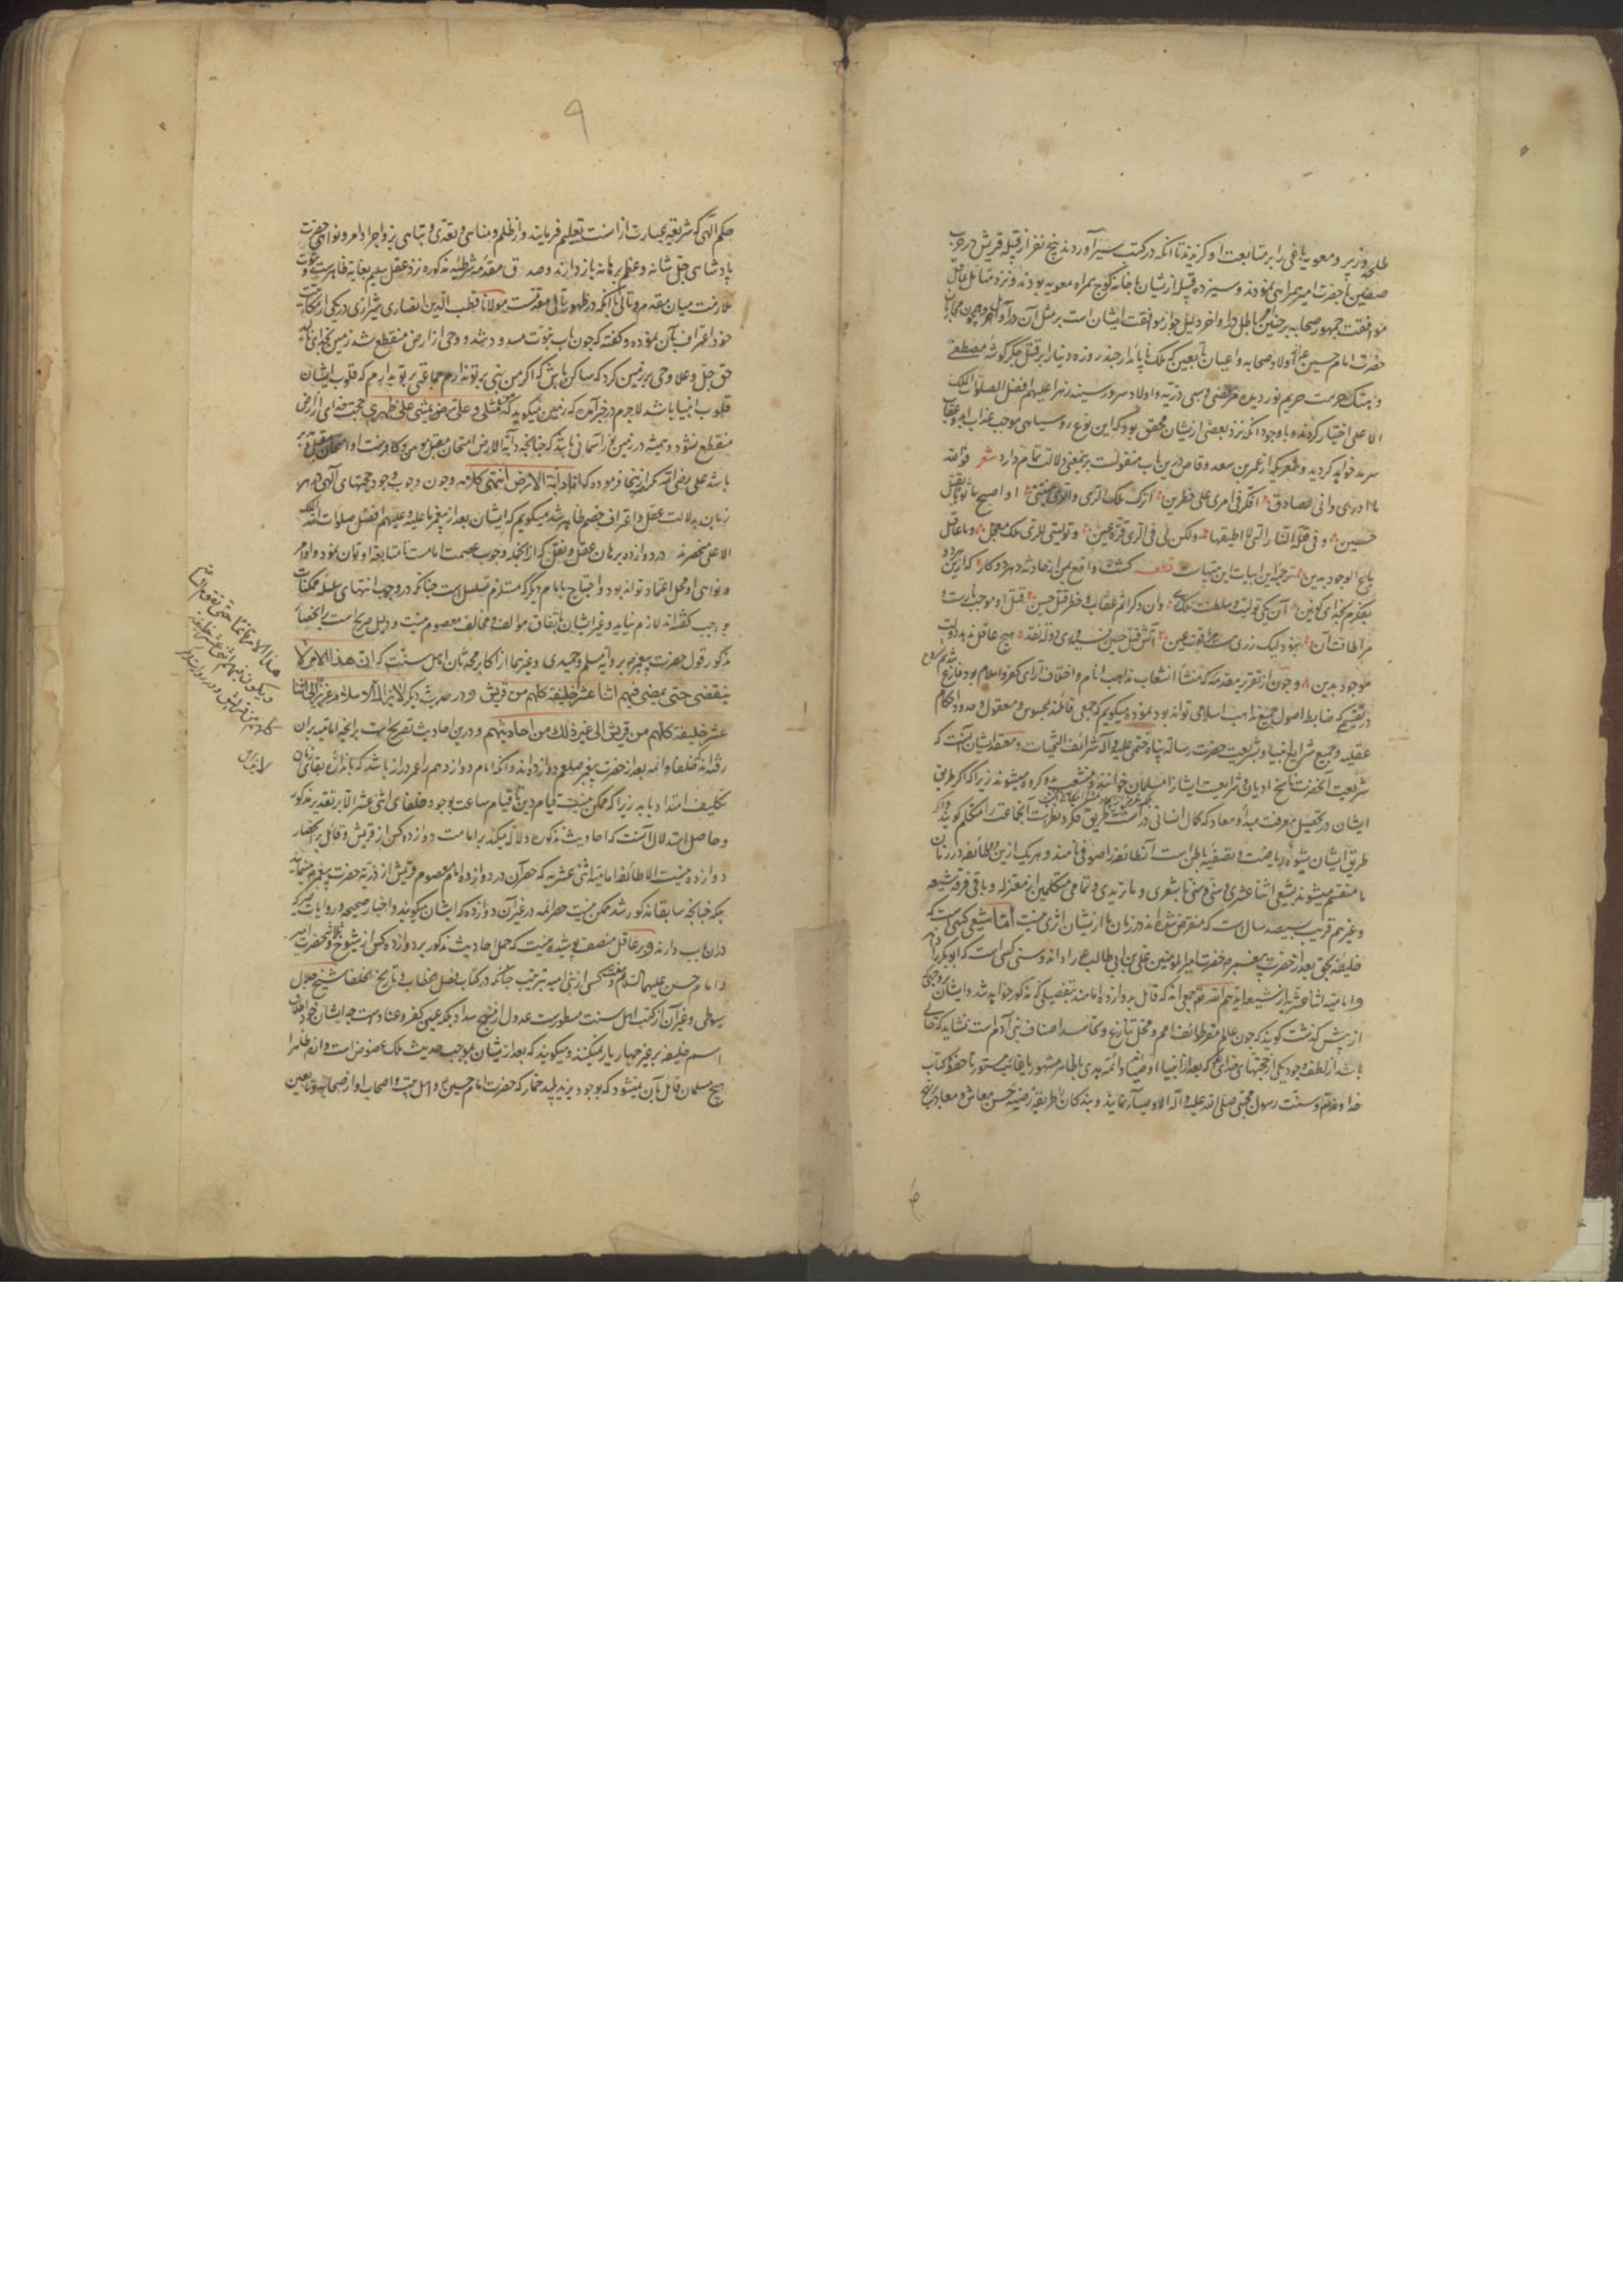 طلحه و زبیر و معویه یاغی را بر متابعت او کزیدند تا آنکه در کتب سیر آورده‌اند پنج نفر از قبیله قریش در حرب
صفین با حضرت امیر همراهی نمودند و سیزده قبیله از ایشان با خانه کوچ همراه معویه بودند و نزد متأمل عاقل
موافقت جمهور صحابه بر چنین باطل در اواخر دلیل جواز موافقت ایشان است بر مثل آن در اوایل
حضرت امام حسین اولاد صحابه و اعیان تابعین که ملک ناپایدار چند روزه دنیا را بر قتل جگر گوشه مصطفی
و هتک حرمت حریم نور دیده مرتضی و سبی ذریه و اولاد سرور سینه زهرا علیهم افضل الصلوات الملک
الاعلی اختیار کردند و با وجود آنکه نزد بعضی از ایشان محقق بود که این نوع روسیاهی موجب عذاب ابد و عقاب
سرمد خواهد کردید و شعری که از عمر بن سعد وقاص درین باب منقولست برین معنی دلالت تمام دارد شعر فوالله
ما ادری وانی لصادق افکر فی امری علی خطرین اترک ملک الری والری منیتی او اصبح مأثوما بقتل
حسین و فی قتله النار التی لا اطیقها ولکن لی فی الری قرة عین و تولیتی للری ملک معجل و ما عاقل
باع الوجود بدین ترجمه این ابیات این متیبات قطعه کشت واقع بمن از حادثه دهر دو کار که ازین دو
بفکرم بخدای کونین آن یکی تولیت و سلطنت ملک ری وان دکر اثم عقاب و خطر قتل حسین قتل او موجب نارست و
مرا طاقت آن نبود لیک ز ری هست مرا قوت عین آتش قتل حسین نسیه و ری دولت نقد هیچ عاقل ندهد دولت
موجود بدین و چون از تقریر مقدمه که منشأ انشعاب مذاهب انام و اختلاف آرای کفر و اسلام بود فارغ شدیم
در تقسیمی که ضابط اصول جمیع مذاهب اسلامی تواند بود نموده میکوییم که جمعی قائلند بمحسوس و معقول و حدود و احکام
عقلیه و جمیع شرایع انبیا و شریعت حضرت رسالة پناه ختمی علیه و آله شرائف التحیات و معتقد ایشان آنست که
شریعت آنحضرت ناسخ ادیان و شرایعست ایشانرا مسلمان خوانند و منشعب بدو کروه میشوند زیرا که اکر طریق
ایشان در تحصیل معرفت مبدأ و معاد که کمال انسانی در آنست طریق فکر و نظر است آنجماعت را متکلم کویند و اکر
طریق ایشان شیوه ریاضت و تصفیه باطن است آنطائفه را صوفی نامند و هر یک ازین دو طائفه در زمان
ما منقسم میشوند بشیعی اثنا عشری و سنی و سنی باشعری و ماتریدی و تمامی متکلمین از معتزله و باقی فرق شیعه
و غیرهم قریب بسیصد سال است که منقرض شده‌اند و در زمان ما از ایشان اثری نیست اما شیعی کسی است که
خلیفه بحق بعد از حضرت پیغمبر حضرت امیر المؤمنین علی بن ابی طالب را داند و سنی کسی است که ابوبکر را داند
و امامیه اثنا عشریه از شیعه ایدهم الله جمعی‌اند که قائل بدوازده امامند بتفصیلی که مذکور خواهد شد و ایشان بر وجهی
از پیش کذشت کویند که چون عالم مقر طوائف امم و محل تنازع و تحاسد اصناف بنی آدم است نشاید که خالی
باشد از لطف وجود یکی از حجتهای خدای که بعد از انبیا اوصیا و ائمه هدی یا ظاهر مشهور یا غائب مستور تا حفظ کتاب
خدا و سنت رسول مجتبی صلی الله علیه و آله الاوصیا نمایند و بندکان طریقه مرضیه حسن معاش و معاد بر نهج
۹
حکم الهی که شریعه عبارت از آنست تعلیم فرمایند و از ظلم و مناهی و تعدی و تباهی بزواجر اوامر و نواهی حضرت
پادشاهی جل شانه و عظم برهانه باز دارند و صدق مقدمه شرطیه مذکوره نزد عقل سلیم بغایة ظاهرست و ثبوت
ملازمت میان مقدم و تالی با آنکه در ظهور تالی مقدمست مولانا قطب الدین انصاری شیرازی در یکی از مکاتیب
خود اعتراف بآن نموده و کفته که چون باب نبوت مسدود شد و وحی از ارض منقطع شد زمین بخدای نالید
حق جل و علا وحی بر زمین کرد که ساکن باش که اکر من نبی بر تو ندارم جماعتی بر تو بدارم که قلوب ایشان
قلوب انبیا باشد لاجرم در خبر آمده که زمین میکوید که مثلی و علی یمشی علی ظهری حجت خدای از ارض
منقطع نشود و همیشه در زمین نور آسمانی باشد که چنانچه دابة الارض امتحان مقبل و مؤمن و کافر صفت او امتحان مقبل و مدبر
باشد علی رضی الله مکر از اینجا فرموده که انا دابة الارض انتهی کلامه و چون وجوب وجود حجتهای الهی در هر
زمان بدلالت عقل و اعتراف خصم ظاهر شد میکوییم که ایشان بعد از پیغمبر ما علیه و علیهم افضل صلوات الملک
الاعلی منحصرند در دوازده ببرهان عقل و نقل که از آنجمله وجوب عصمت امامست تا متابعة او توان نمود و اوامر
و نواهی او محل اعتماد تواند بود و احتیاج بامام دیکر که مستلزم تسلسل است چنانکه در وجوب انتهای سلسله ممکنات
بواجب کفته‌اند لازم نیاید و غیر ایشان باتفاق مؤالف و مخالف معصوم نیست و دلیل صریح است بر انحصار
مذکور قول حضرت پیغمبر بروایه مسلم و حمیدی و غیرهما از اکابر محدثان اهل سنت که ان هذا الامر لا
ینقضی حتی یمضی فیهم اثنا عشر خلیفة کلهم من قریش و در حدیث دیکر لا یزال الاسلام عزیزا الی اثنا
عشر خلیفة کلهم من قریش الی غیر ذلک من احادیثهم و درین احادیث تصریح است بر آنچه امامیه بران
رفته‌اند که خلفا و ائمه بعد از حضرت پیغمبر صلعم دوازده‌اند و آنکه امام دوازدهم را عمر دراز باشد که باندازه بقای زمان
تکلیف امتداد یابد زیرا که ممکن نیست قیام دین تا قیام ساعت بوجود خلفای اثنی عشر الا بر تقدیر مذکور
و حاصل استدلال آنست که احادیث مذکوره دلالة میکند بر امامت دوازده کس از قریش و قائل بر انحصار
دوازده نیست الا طائفه امامیه اثنی عشریه که حصر آن در دوازده امام معصوم قریش از ذریه حضرت پیغمبر مینمایند
بلکه چنانچه سابقا مذکور شد ممکن نیست حصر ائمه در غیر آن دوازده که ایشان میکویند و اخبار صحیحه و روایات صریحه
دران باب دارند و بر عاقل منصف پوشیده نیست که حمل احادیث مذکور بر دوازده کس از شیوخ ثلاثه و حضرت امیر
و امام حسن علیهما السلام و هفت کس از بنی امیه بترتیب چنانکه در کتاب فصل الخطاب و تاریخ الخلفا شیخ جلال
سیوطی و غیر آن از کتب اهل سنت مسطورست عدول از نهج سداد بلکه عین کفر و عنادست چه ایشان خود اطلاق
اسم خلیفه بر غیر چهار یار نمیکنند و میکویند که بعد از ایشان بموجب حدیث ملک عضوض است و ایضا ظاهرا
هیچ مسلمان قائل بآن نمیشود که بوجود یزید پلید خمار که حضرت امام حسین و اهل بیت و اصحاب او از صحابه و تابعین
هذا الامر قائما حتی تقوم الساعة
و یکون فیهم اثنی عشر خلیفة
کلهم من قریش و در روایت دیکر
لا یزال